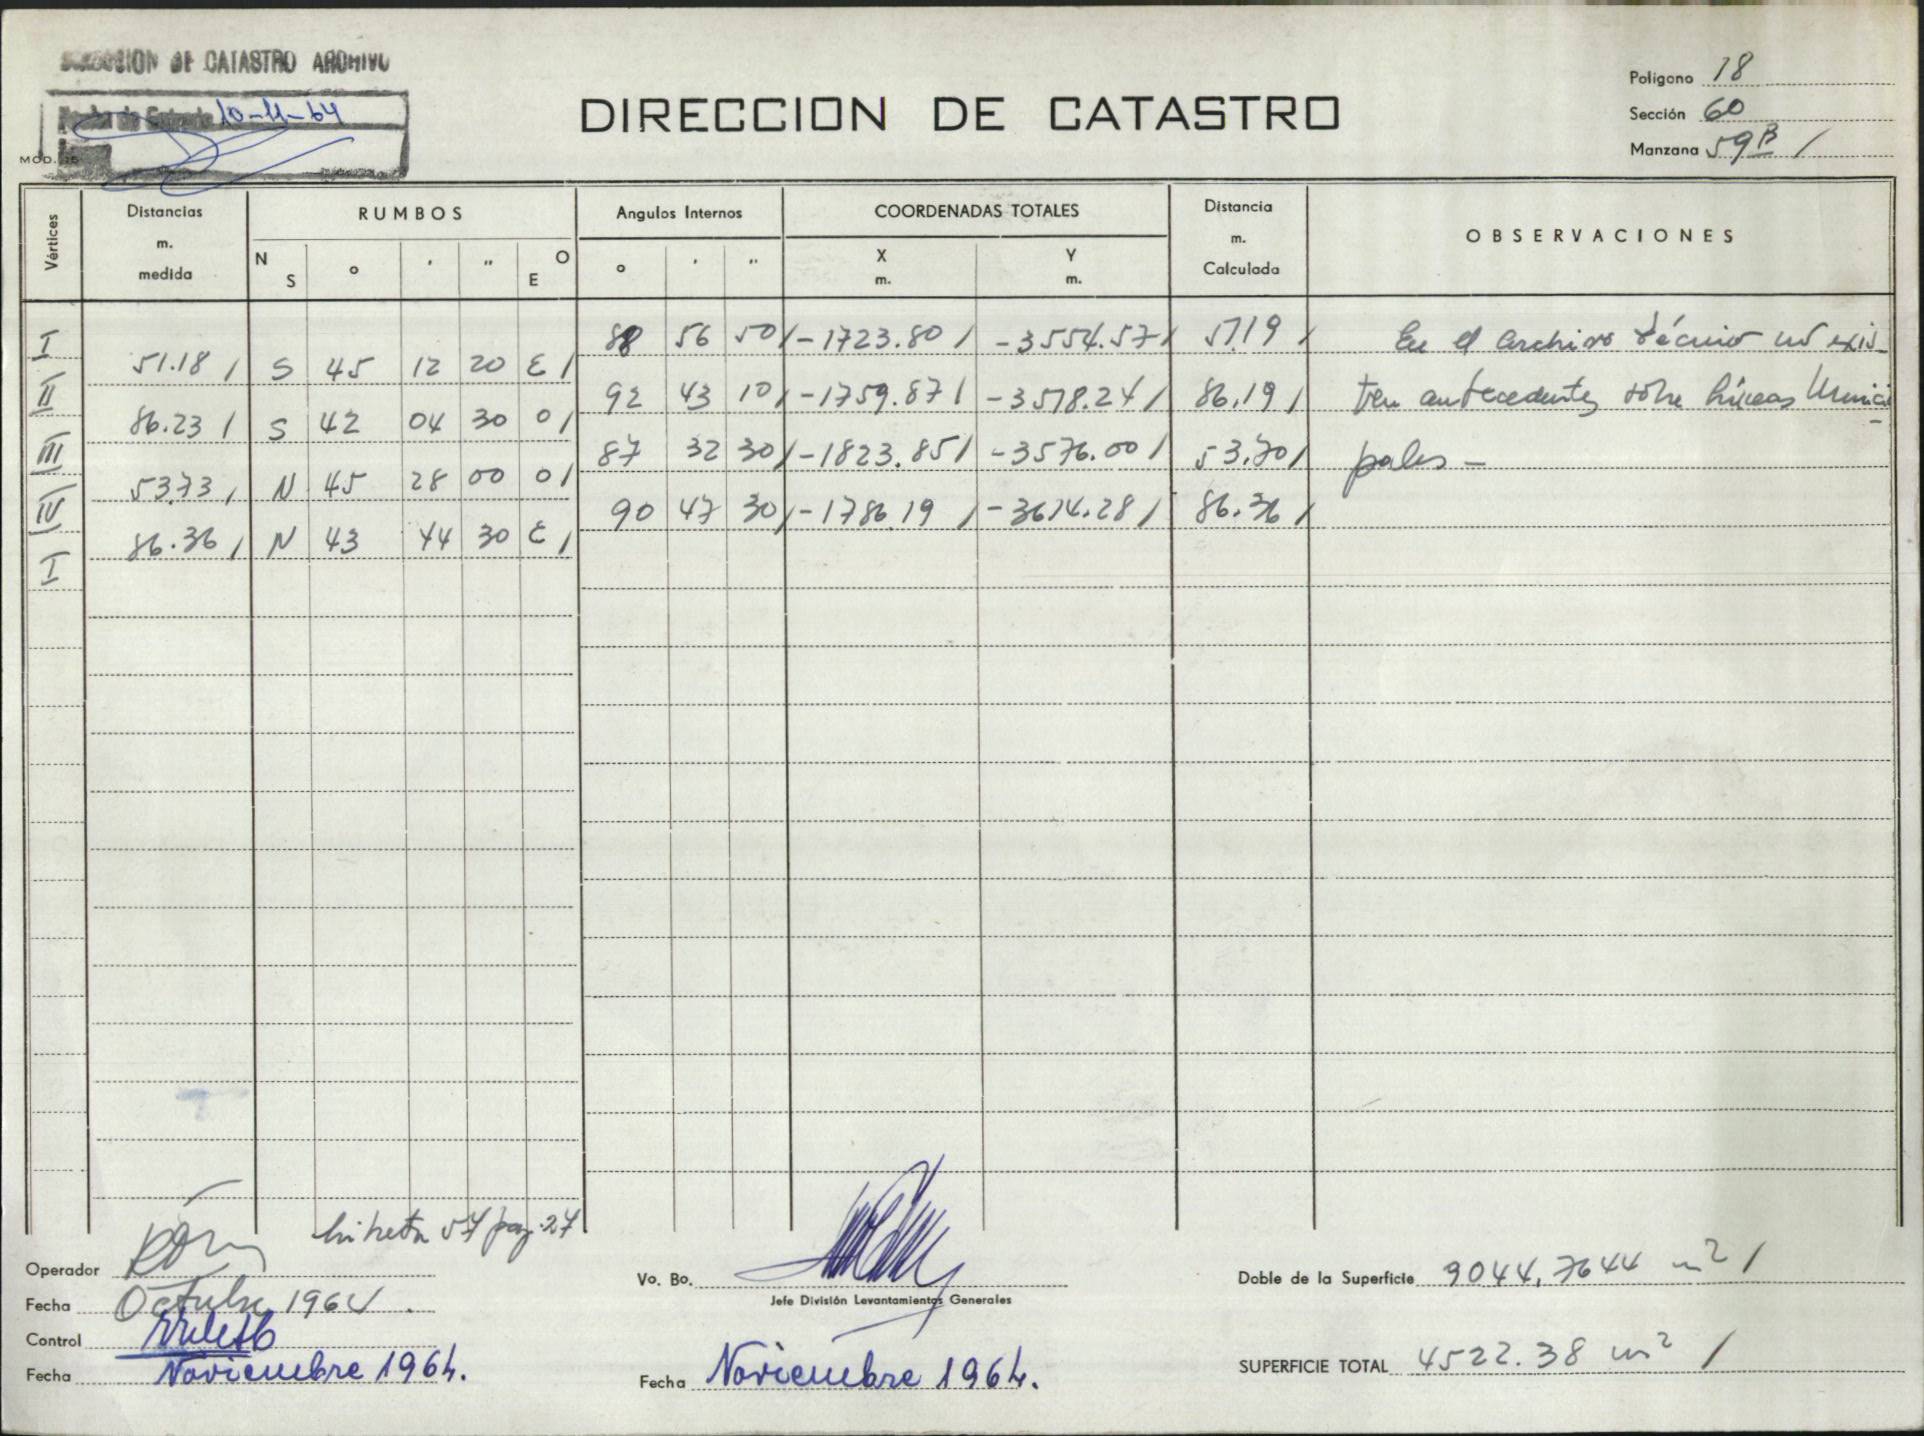 DIRECCION DE CATASTRO ARCHIVO
Fecha de Entrada 10-11-64
MOD.
DIRECCION DE CATASTRO
Polígono 18
Sección 60
Manzana 59B /
Vértices
Distancias m. medida
RUMBOS
N S ° ' " O E
Angulos Internos
° ' "
COORDENADAS TOTALES
X m. Y m.
Distancia m. Calculada
OBSERVACIONES
I 88 56 50 / -1723.80 / -3554.57 / 51.19 / En el archivo técnico no exis-
51.18 / S 45 12 20 E /
II 92 43 10 / -1759.87 / -3518.24 / 86.19 / ten antecedentes sobre líneas Munici-
86.23 / S 42 04 30 O /
III 87 32 30 / -1823.85 / -3576.00 / 53.70 / pales -
53.73 / N 45 28 00 O /
IV 90 47 30 / -1786.19 / -3614.28 / 86.36 /
86.36 / N 43 44 30 E /
I
libreta 57 pag. 27
Operador
Fecha Octubre 1964.
Control
Fecha Noviembre 1964.
Vo. Bo.
Jefe División Levantamientos Generales
Fecha Noviembre 1964.
Doble de la Superficie 9044,7644 m2 /
SUPERFICIE TOTAL 4522.38 m2 /